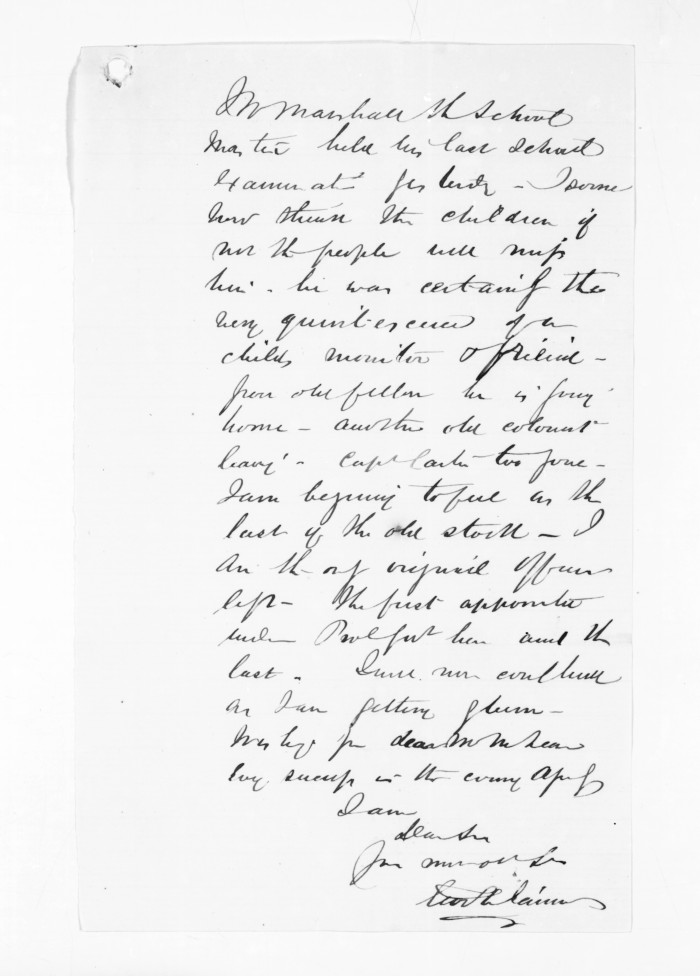 Mr Marshall the School
Master held his last School
Examinatn yesterday - I some
how think the children if
not the people will miss
him - he was certainly the
very quintescence of a
childs monitor & friend -
poor old fellow he is going
home - another old colonist
leaving - Capt Carter too gone -
I am begining to feel as the
last of the old stock - I
am the only original Officer
left - the first appointed
under Prol Govt here and the
last - I will now conclude
as I am getting glum -
Wishing you dear Mr McLean
Evy success in the coming
I am
Dear Sir
Your most Sr